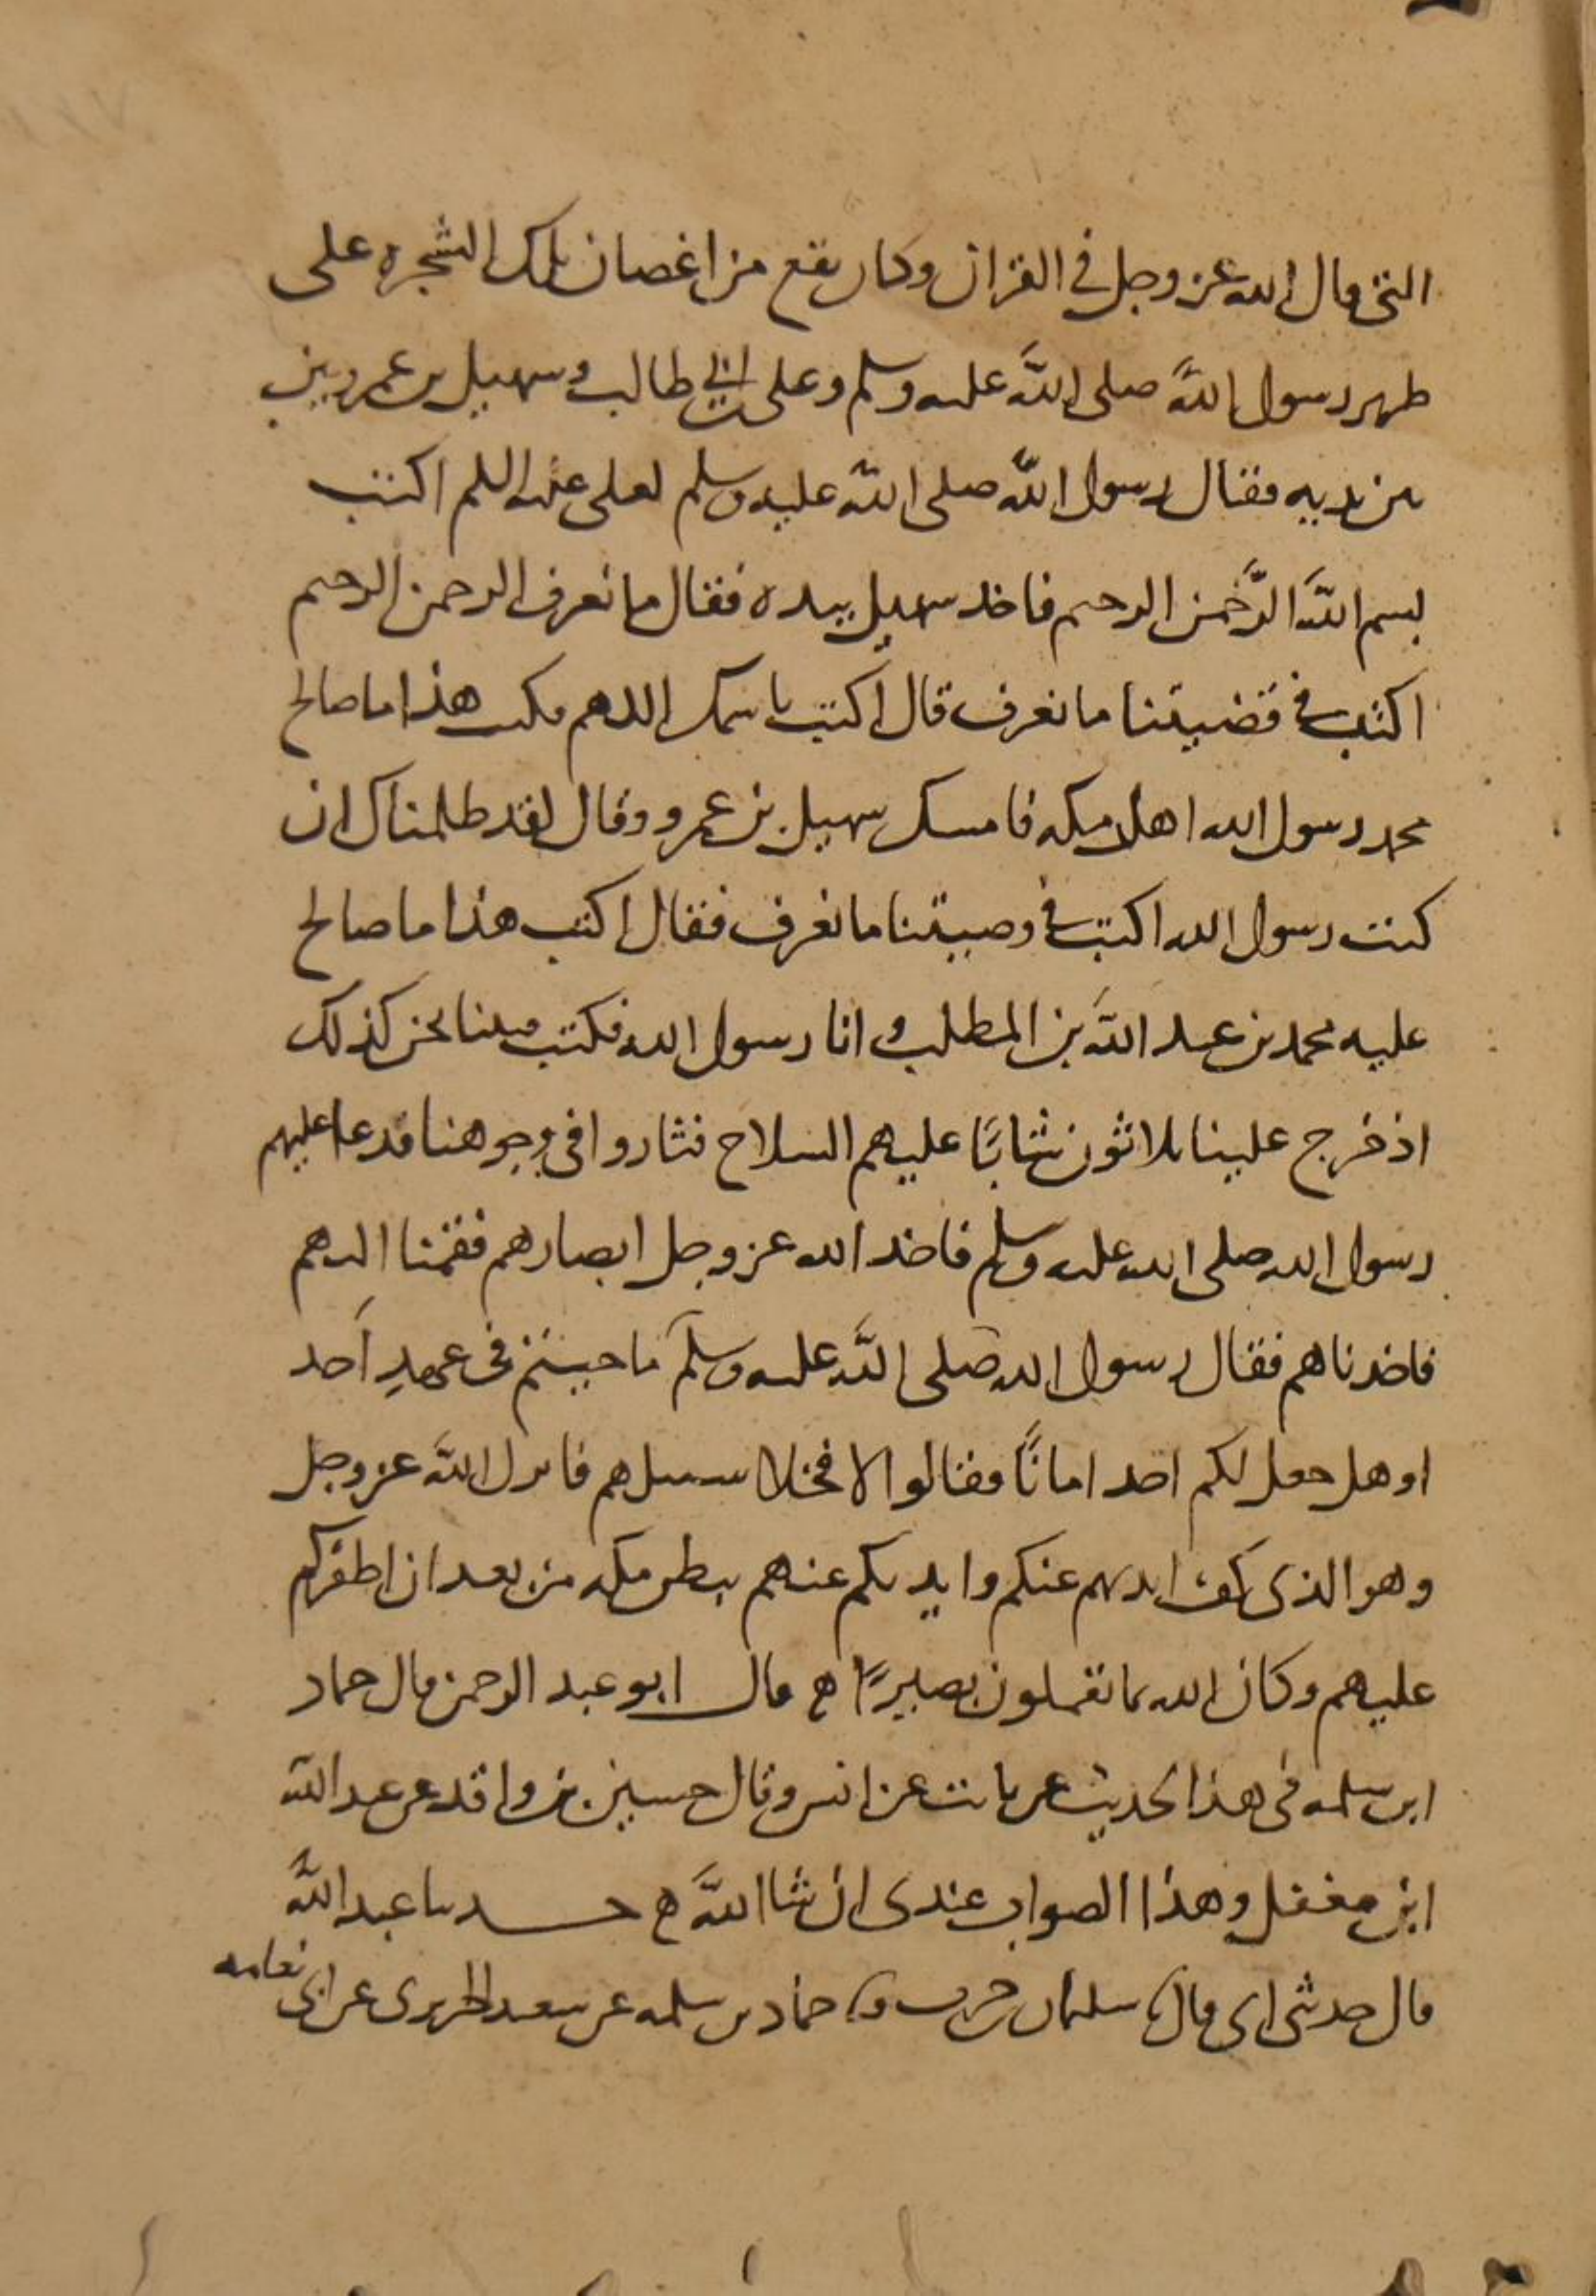 التى قال الله عز وجل فى القران وكان يقع من اغصان تلك الشجره على
ظهر رسول الله صلى الله عليه وسلم وعلى بن ابى طالب وسهيل بن عمرو بين
بين يديه فقال رسول الله صلى الله عليه وسلم لعلى عليه السلم اكتب
بسم الله الرحمن الرحيم فاخد سهيل بيده فقال ما نعرف الرحمن الرحيم
اكتب فى قضيتنا ما نعرف قال اكتب باسمك اللهم فكتب هذا ما صالح
محمد رسول الله اهل مكه فامسك سهيل بن عمرو وقال لقد ظلمناك ان
كنت رسول الله اكتب فى وصيتنا ما نعرف فقال اكتب هذا ما صالح
عليه محمد بن عبد الله بن المطلب وانا رسول الله فكتب فبينا نحن كذلك
اذ خرج علينا ثلاثون شابا عليهم السلاح فثاروا فى وجوهنا فدعا عليهم
رسول الله صلى الله عليه وسلم فاخد الله عز وجل ابصارهم فقمنا اليهم
فاخدناهم فقال رسول الله صلى الله عليه وسلم ما جيتم فى عهد احد
او هل جعل لكم احد امانًا فقالوا لا فخلا سبيلهم فانزل الله عز وجل
وهو الذى كف ايديهم عنكم وايديكم عنهم ببطن مكه من بعد ان اظفركم
عليهم وكان الله بما تعملون بصيرًا ه قال ابو عبد الرحمن قال حماد
ابن سلمه فى هذا الحديث عن ثابت عن انس وقال حسين بن واقد عن عبد الله
ابن مغفل وهذا الصواب عندى ان شا الله ه حدثنا عبد الله
قال حدثنى ابى قال ثنا سليمان بن حرب ثنا حماد بن سلمه عن سعيد الجريرى عن ابى نعامه